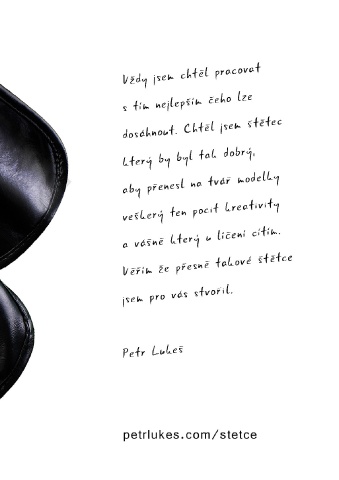 Vždy jsem chtěl pracovat
s tím nejlepším čeho lze
dosáhnout. Chtěl jsem štětec
který by byl tak dobrý,
aby přenesl na tvář modelky
veškerý ten pocit kreativity
a vášně který u líčení cítím.
Věřím že přesně takové štětce
jsem pro vás stvořil.
Petr Lukeš
petrlukes.com/stetce